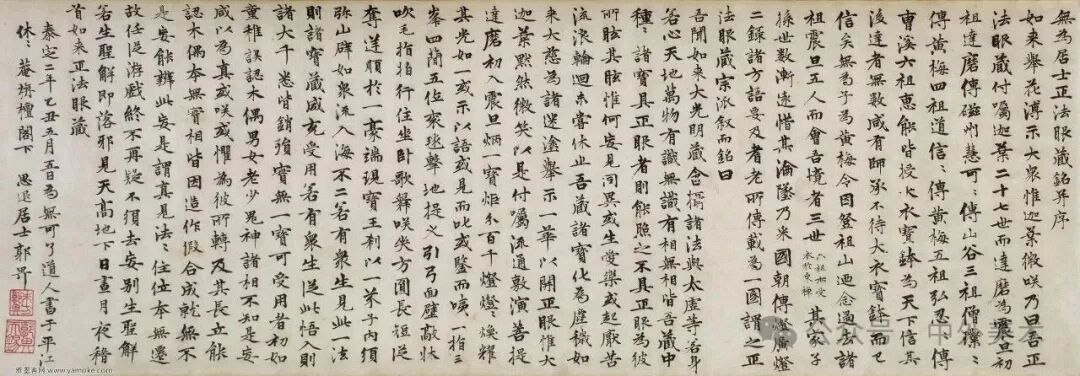 無為居士正法眼藏銘并序
如來舉花溥示大衆惟迦葉微咲乃曰吾正
法眼藏付囑迦葉二十七世而達磨為震旦初
祖達磨傳磁州慧可〻傳山谷三祖僧璨〻
傳黄梅四祖道信〻傳黄梅五祖弘忍〻傳
曹溪六祖惠能皆授以衣寶鉢為天下信其
後達者無數咸有師承不待大衣寶鉢而已
信矣無為子為黄梅令因登祖山迺念過去諸
祖震旦五人而會吾境者三世六祖相受衣於東其家子
孫世数漸遠惜其淪墜乃 國朝傳燈廣燈
二録諸方語要及耆老所傳載為一圖謂之正
法眼藏宗派叙而銘曰
吾聞如來大光明藏含攝諸法與太虛等吾身
若心天地萬物有識無識有相無相皆吾藏中
種〻諸寶具正眼者則能照之不具正眼為彼
所眩其眩惟何妄見同異或生愛樂或起厭苦
流浪輪迴未嘗休止吾藏諸寶化為塵穢如
來大慈為諸迷途舉示一華以開正眼惟大
迦葉默然微笑以是付囑流通敷演菩提
達磨初入震旦炳一寶炬分百千燈燈〻煥耀
其光如一或示以語或見而叱或鑒而咦一指三
峯四蕳五位袞毬擊地提叉引弓面壁敲牀
吹毛指拍行住坐卧歌舞咲哭方圓長短從
奪逆順於一豪端現寶王刹以一芥子内須
弥山辟如衆流入海不二若有衆生見此一法
則諸寶藏咸充受用若有衆生從此悟入則
諸大千悉皆銷殞實無一寶可受用者初如
重稚誤認木偶男女老少鬼神諸相不知是妄
咸以為真或咲或懼為彼所轉及其長立能
認木偶本無實相皆因造作假合成就無不
是妄能辨此妄是謂真見法〻住位本無遷
故任從游戲終不再疑不須去妄別生聖解
若生聖解即落邪見天高地下日晝月夜稽
首如來正法眼藏
泰定二年乙丑五月五日為無可了道人書于平江
休〻菴旃檀閣下 思退居士郭畀
雅墨客网 www.yamoke.com